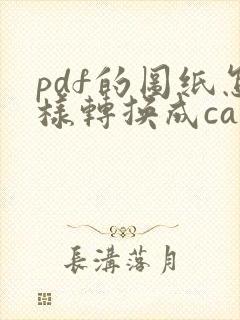 pdf的图纸怎
樣轉换成ca
長溝落月